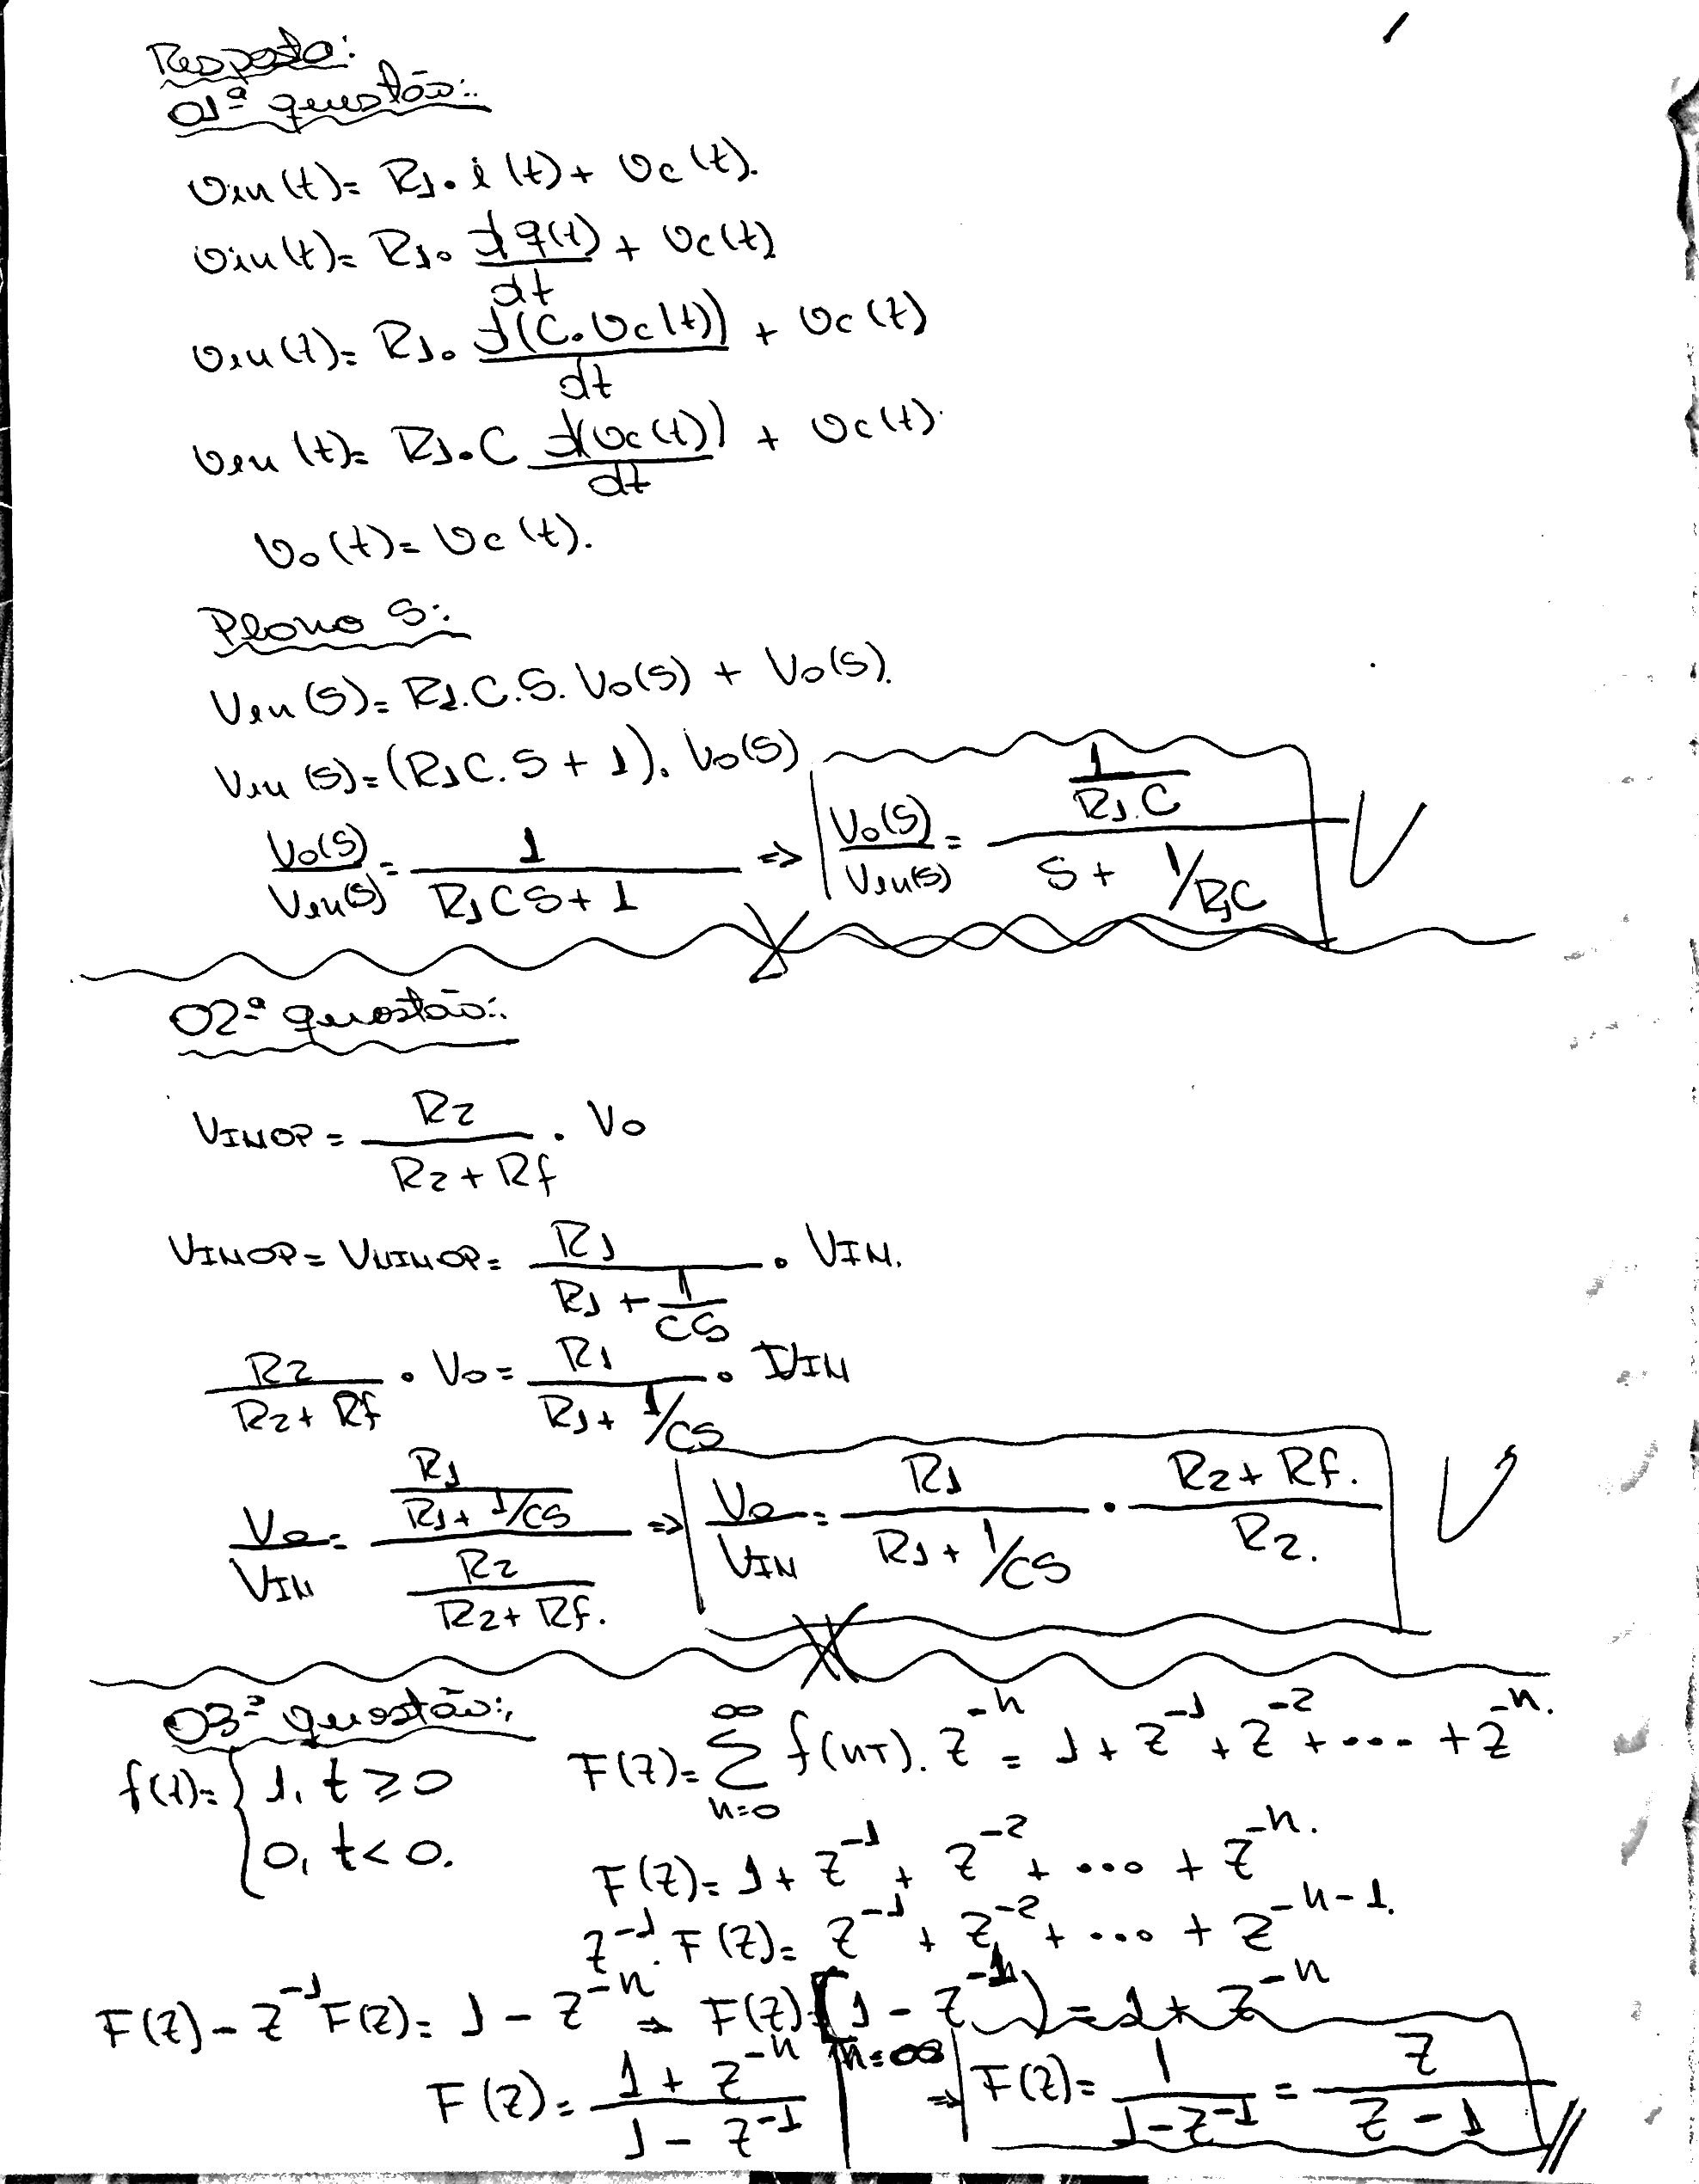 Resposta:
01ª questão:
Vin(t) = R1.i(t) + Vc(t).
Vin(t) = R1. dq(t)/dt + Vc(t)
Vin(t) = R1. d(C.Vc(t))/dt + Vc(t)
Vin(t) = R1.C d(Vc(t))/dt + Vc(t).
Vo(t) = Vc(t).
Plano S:
Vin(S) = R1.C.S.Vo(S) + Vo(S).
Vin(S) = (R1C.S + 1).Vo(S)
Vo(S)/Vin(S) = 1/(R1CS + 1) => Vo(S)/Vin(S) = (1/R1.C)/(S + 1/R1C)
02ª questão:
VINOP = R2/(R2 + Rf) . Vo
VINOP = VNINOP = R1/(R1 + 1/CS) . VIN.
R2/(R2 + Rf) . Vo = R1/(R1 + 1/CS) . VIN
Vo/VIN = (R1/(R1 + 1/CS))/(R2/(R2 + Rf.)) => Vo/VIN = R1/(R1 + 1/CS) . (R2 + Rf.)/R2.
03ª questão:
f(t) = { 1, t ≥ 0
0, t < 0.
F(Z) = ∑ n=0 ∞ f(nT).Z^-n = 1 + Z^-1 + Z^-2 + ... + Z^-n.
F(Z) = 1 + Z^-1 + Z^-2 + ... + Z^-n.
Z^-1.F(Z) = Z^-1 + Z^-2 + ... + Z^-n-1.
F(Z) - Z^-1F(Z) = 1 - Z^-n => F(Z)(1 - Z^-1) = 1 + Z^-n
F(Z) = (1 + Z^-n)/(1 - Z^-1) | n=∞ => F(Z) = 1/(1-Z^-1) = Z/(Z-1)